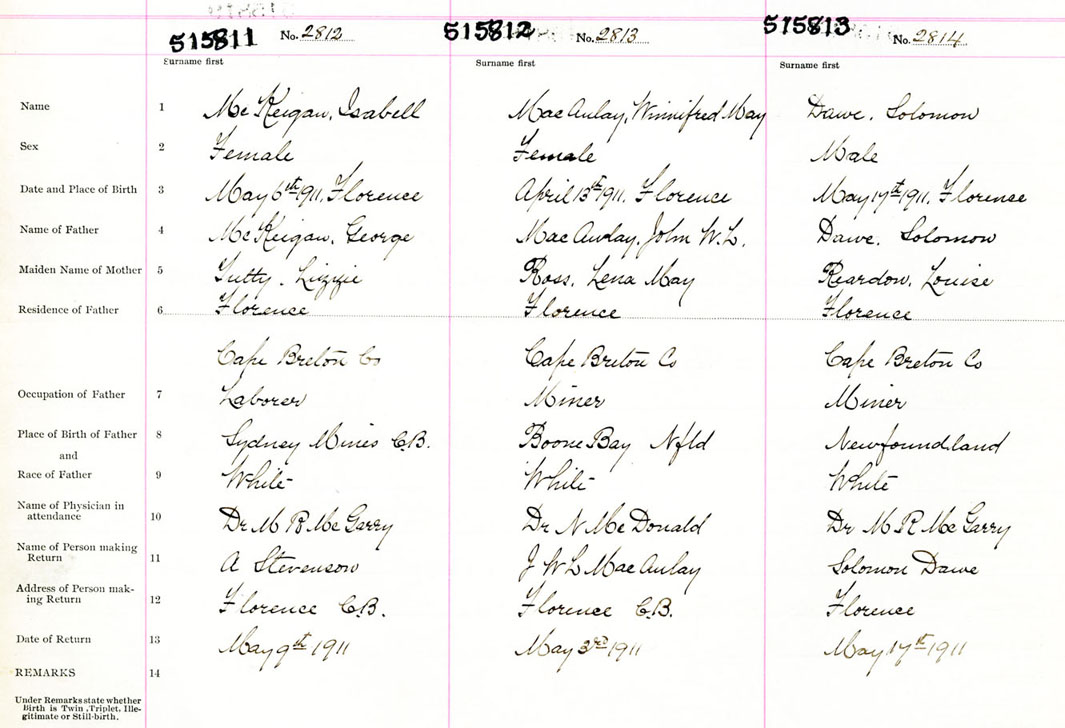 515811 No. 2812 515812 No. 2813 515813 No. 2814
Surname first Surname first Surname first
Name 1 Mc Keigan, Isabell Mac Aulay, Winnifred May Dawe, Solomon
Sex 2 Female Female Male
Date and Place of Birth 3 May 6th 1911, Florence April 13th 1911, Florence May 17th 1911, Florence
Name of Father 4 Mc Keigan, George Mac Aulay, John W.L. Dawe, Solomon
Maiden Name of Mother 5 Tutty, Lizzie Ross, Lena May Reardon, Louise
Residence of Father 6 Florence Florence Florence
Cape Breton Co Cape Breton Co Cape Breton Co
Occupation of Father 7 Laborer Miner Miner
Place of Birth of Father 8 Sydney Mines C.B. Boone Bay Nfld Newfoundland
and
Race of Father 9 White White White
Name of Physician in
attendance 10 Dr M R McGarry Dr N McDonald Dr M R McGarry
Name of Person making
Return 11 A Stevenson J W L MacAulay Solomon Dawe
Address of Person mak-
ing Return 12 Florence C.B. Florence C.B. Florence
Date of Return 13 May 9th 1911 May 3rd 1911 May 17th 1911
REMARKS 14
Under Remarks state whether
Birth is Twin, Triplet, Ille-
gitimate or Still-birth.